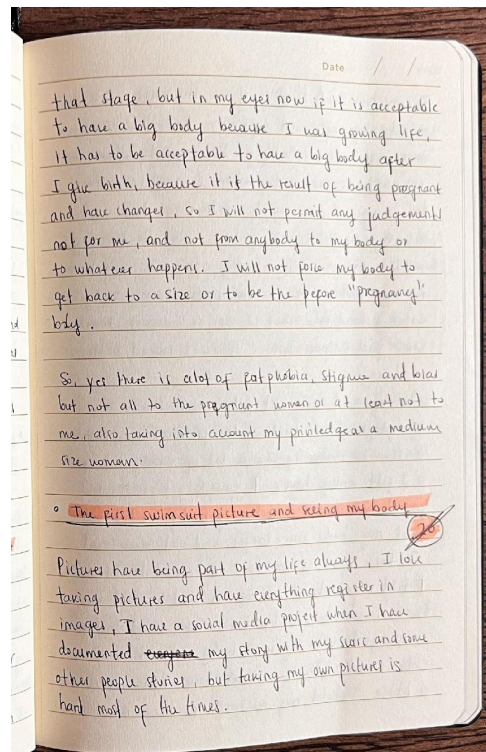 Date / /
that stage, but in my eyes now if it is acceptable
to have a big body because I was growing life,
it has to be acceptable to have a big body after
I give birth, because it if the result of being pregnant
and have changes, so I will not permit any judgements
not for me, and not from anybody to my body or
to whatever happens. I will not force my body to
get back to a size or to be the before "pregnancy"
body.
So, yes there is alot of fatphobia, stigma and bias
but not all to the pregnant women or at least not to
me, also taking into account my priviledge as a medium
size woman.
• The first swimsuit picture and seeing my body
26
Pictures have being part of my life always, I love
taking pictures and have everything register in
images, I have a social media project when I have
documented my story with my scars and some
other people stories, but taking my own pictures is
hard most of the times.